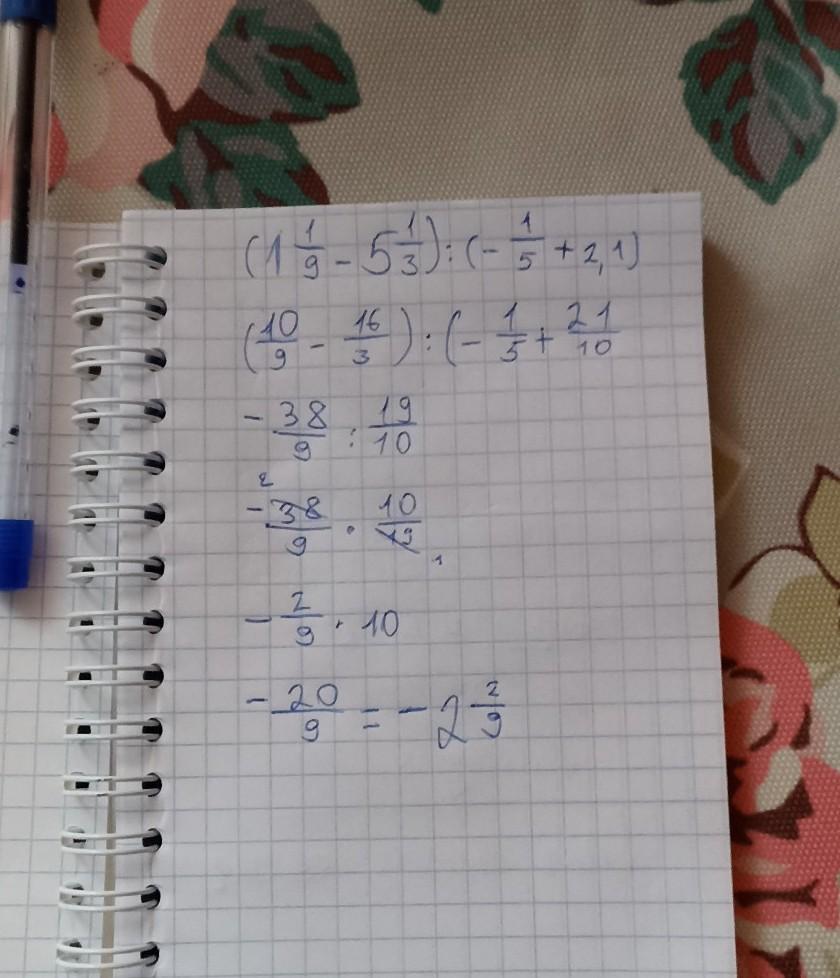 (1 1/9 - 5 1/3) : (- 1/5 + 2,1)
(10/9 - 16/3) : (- 1/5 + 21/10
- 38/9 : 19/10
2
- 38/9 · 10/19
1
- 2/9 · 10
- 20/9 = - 2 2/9